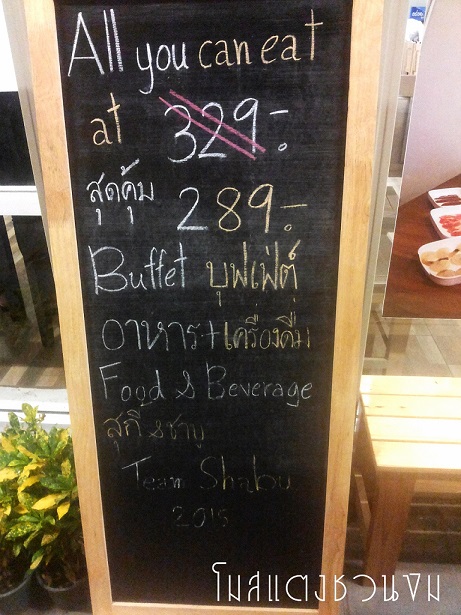 All you can eat
at 329.-
สุดคุ้ม 289.-
Buffet บุฟเฟ่ต์
อาหาร+เครื่องดื่ม
Food & Beverage
สุกี้ & ชาบู
Team Shabu
2015
โมสแตงชวนชิม